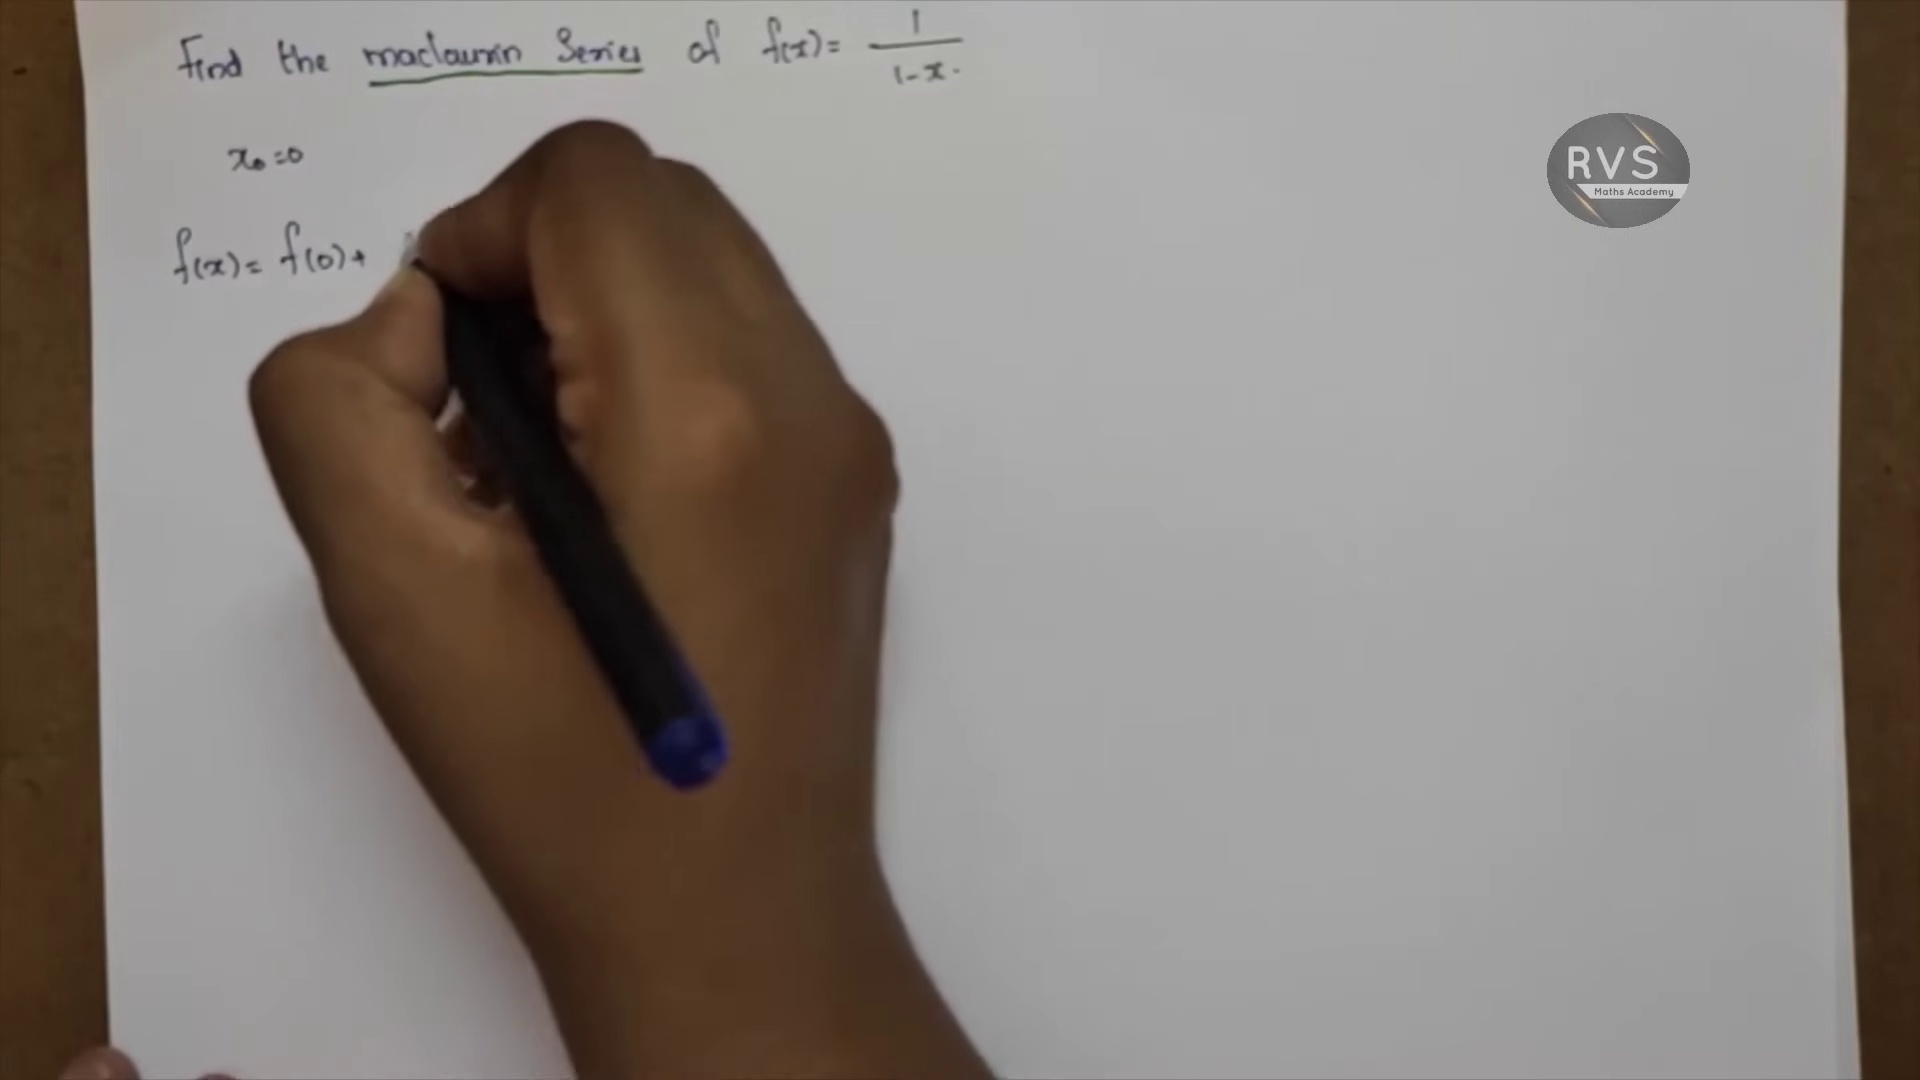 Find the maclaurin Series of f(x) = 1/1-x.
x₀ = 0
f(x) = f(0) +
RVS
Maths Academy